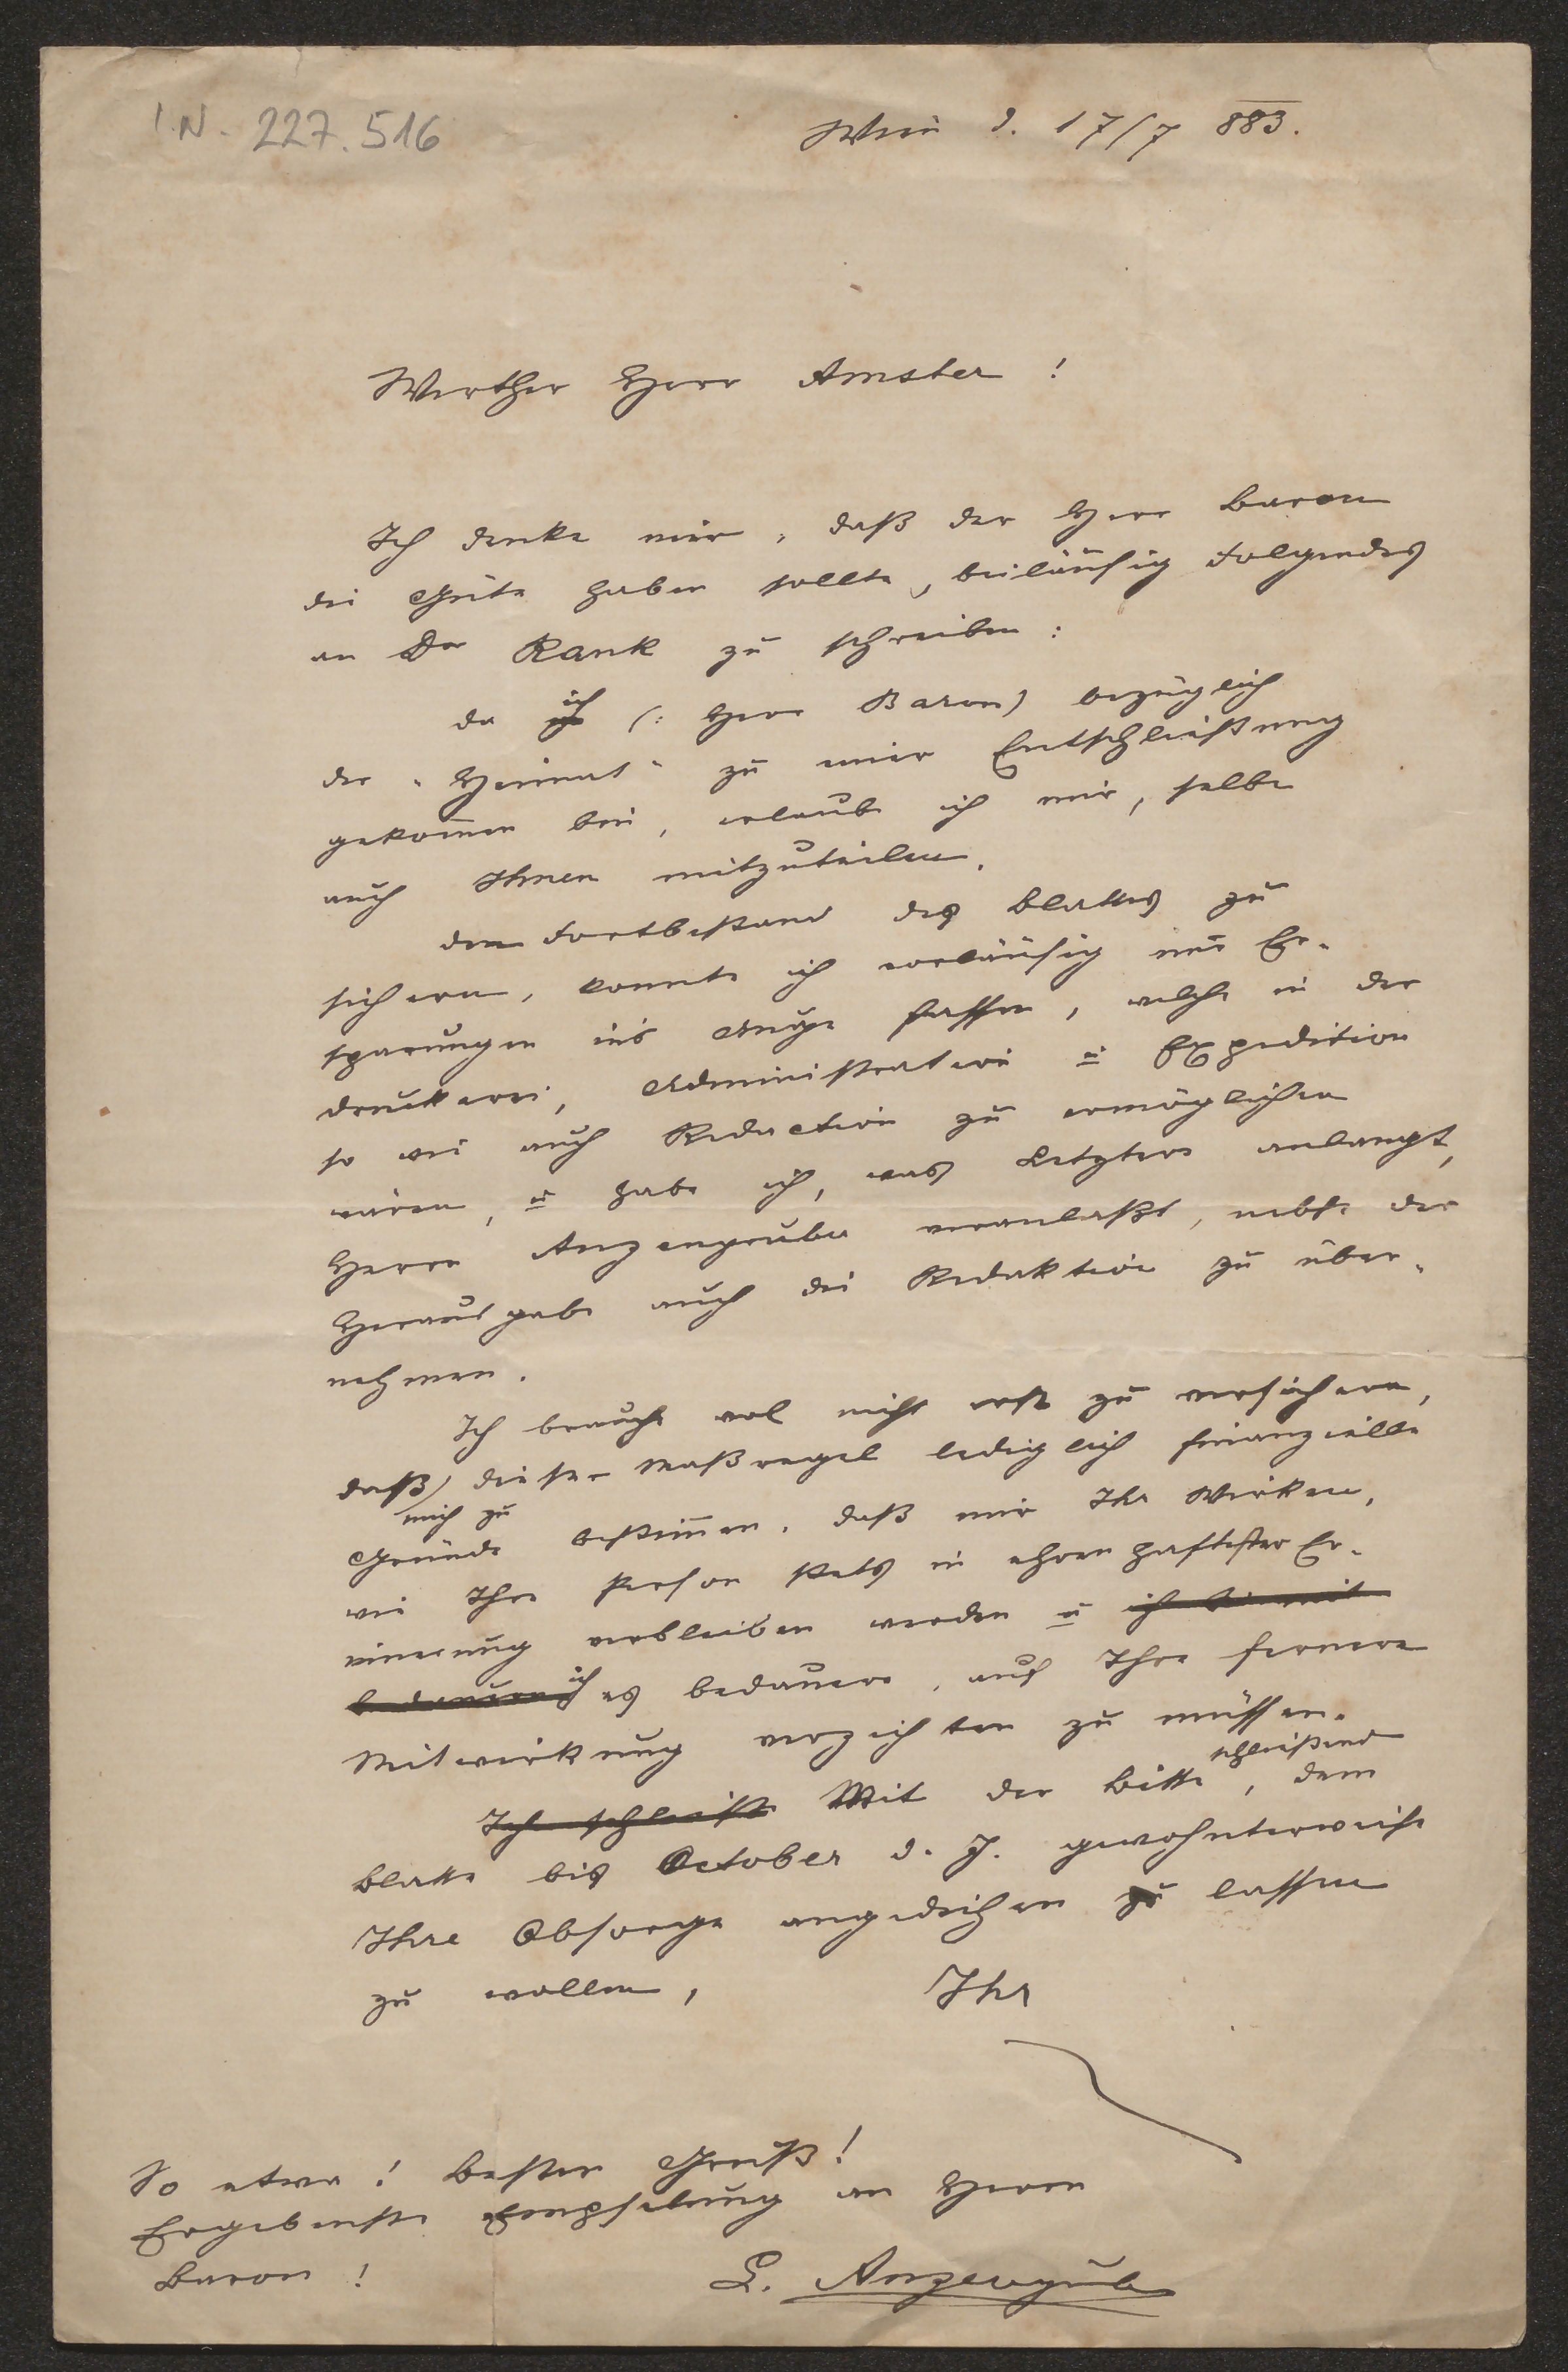 I.N. 227.516
Wien d. 17/7 883.
Werther Herr Amster!
Ich denke mir, daß der Herr Baron
die Güte haben sollte, beiläufig Folgendes
an Dr Rank zu schreiben:
Da ich (: Herr Baron) bezüglich
der "Heimat" zu einer Entschließung
gekommen bin, erlaube ich mir, selbe
auch Ihnen mitzuteilen.
Den Fortbestand des Blattes zu
sichern, konnte ich vorläufig nur Er-
sparungen in's Auge fassen, welche in der
Druckerei, Administration u Expedition
so wie auch Redaction zu ermöglichen
wären, u habe ich, was Letztere anlangt,
Herrn Anzengruber veranlaßt, nebst der
Herausgabe auch die Redaktion zu über-
nehmen.
Ich brauche wol nicht erst zu versichern,
daß mich zu dieser Maßregel lediglich finanzielle
Gründe bestimmen, daß mir Ihr Wirken,
wie Ihre Person stets in ehrenhaftester Er-
innerung verbleiben werden u ich bin mit
bedauern ich es bedauere, auf Ihre fernere
Mitwirkung verzichten zu müssen.
Ich schließe Mit der Bitte schließend, dem
Blatte bis October d. J. gewohnterweise
Ihre Obsorge angedeihen zu lassen
zu wollen, Ihr
So etwa! Besten Gruß!
Ergebenste Empfelung an Herrn
Baron!
L. Anzengruber